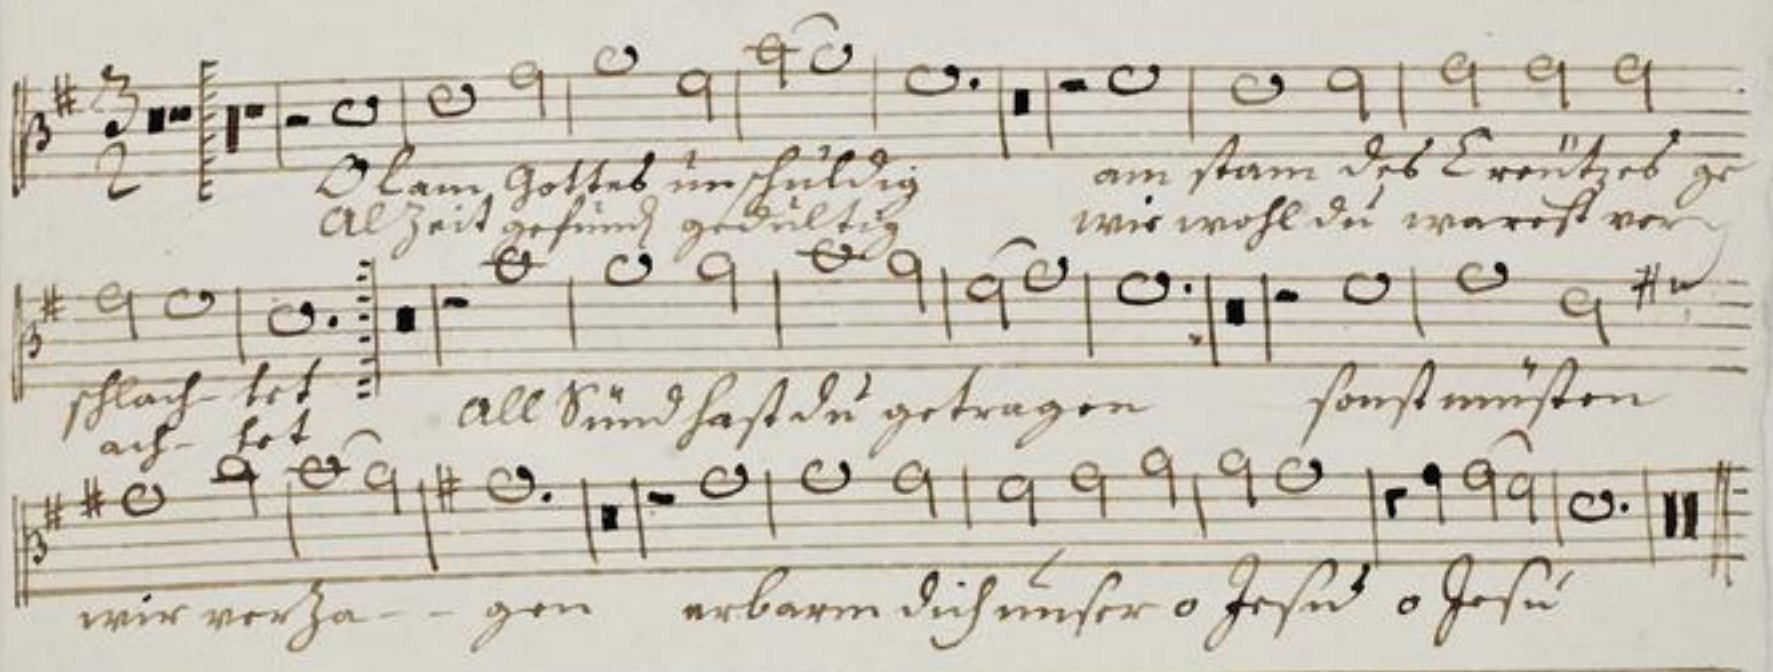 3
2
O lam Gottes unschuldig am stam des Creützes ge
Alzeit gefund gedultig wie wohl du warest ver
schlach- tet All Sünd hast du getragen sonst müsten
ach- tet
wir verza- - gen erbarm dich unser o Jesu o Jesu